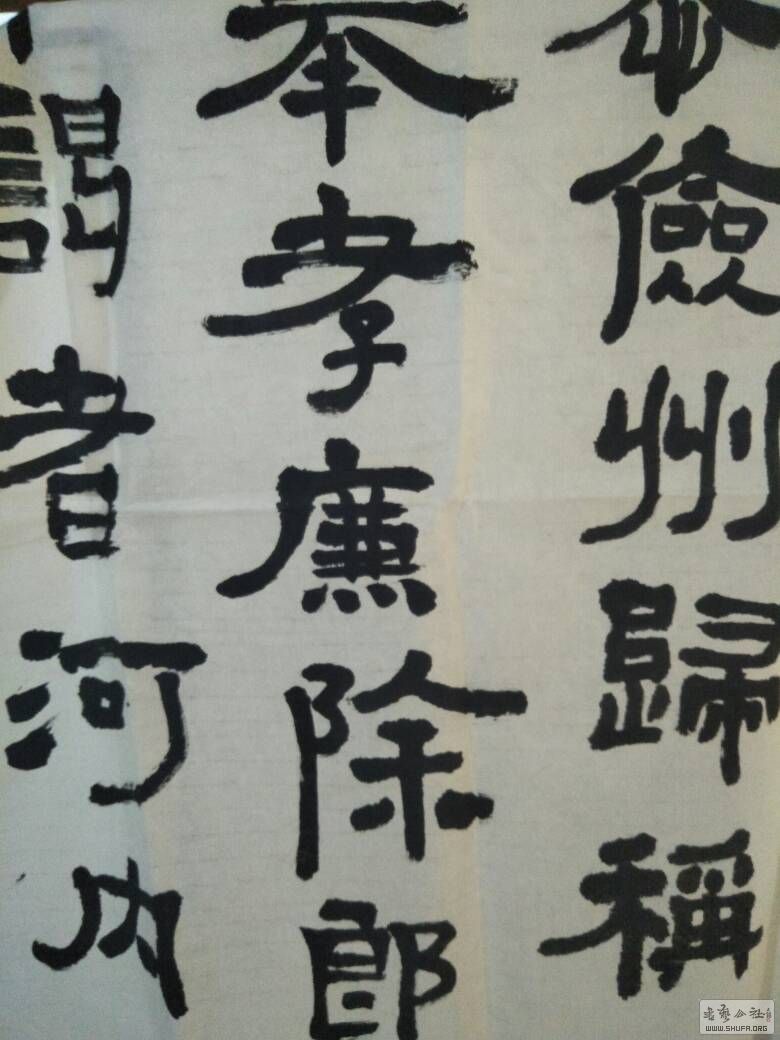 儉州歸稱
孝廉除郎
謁者河内
書藝公社
WWW.SHUFA.ORG